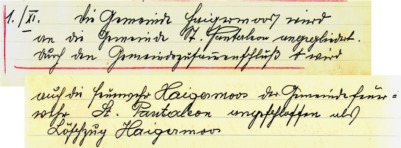 1./XI. Die Gemeinde Haigermoos wird
an die Gemeinde St. Pantaleon angegliedert.
Durch den Gemeindezusammenschluß wird
auch die Feuerwehr Haigermoos der Gemeindefeuer-
wehr St. Pantaleon angeschlossen als
Löschzug Haigermoos